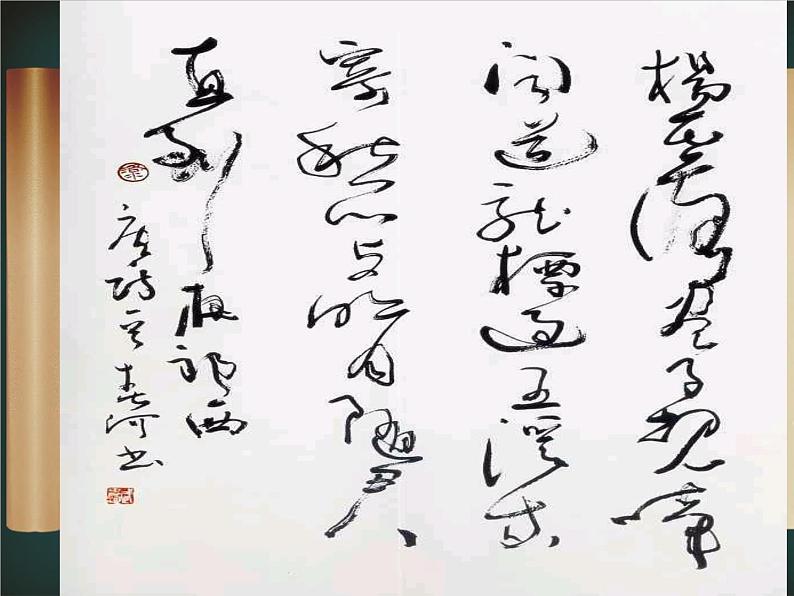 楊花落尽子规啼
闻道龙標过五溪我
寄愁心与明月随君
直到夜郎西
唐诗 春河书